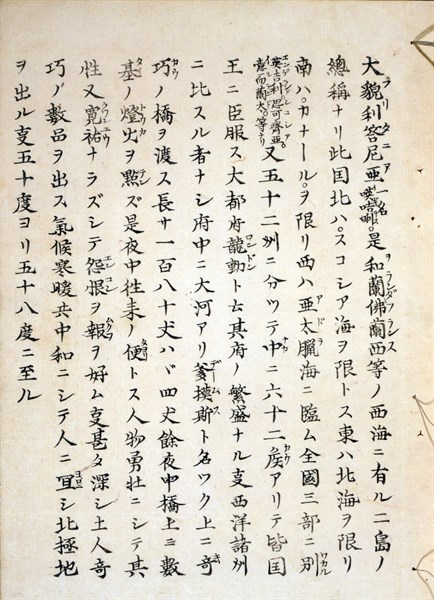 大貌利答尼亜一名𠸄咭唎。是和蘭佛蘭西等ノ西海ニ有ル二島ノ
總称ナリ此国北ハ。スコシア海ヲ限トス東ハ北海ヲ限リ
南ハ。カナール。ヲ限リ西ハ亜太臘海ニ臨ム全國三部ニ別
英吉利思可齊亜。意而蘭大。等ナリ又五十二州ニ分ツテ中ニ六十二矦アリテ皆国
王ニ臣服ス大都府龍動ト云其府ノ繁盛ナル叓西洋諸州
ニ比スル者ナシ府中ニ大河アリ爹摸斯ト名ツク上ニ奇
巧ノ橋ヲ渡ス長サ一百八十丈ハヾ四丈餘夜中橋上ニ數
基ノ燈火ヲ點ズ是夜中徃来ノ便トス人物勇壮ニシテ其
性又寛祐ナラズシテ怨恨ヲ報ヲ好ム叓甚タ深シ土人奇
巧ノ數品ヲ出ス氣候寒暖共中和ニシテ人ニ冝シ北極地
ヲ出ル叓五十度ヨリ五十八度ニ至ル